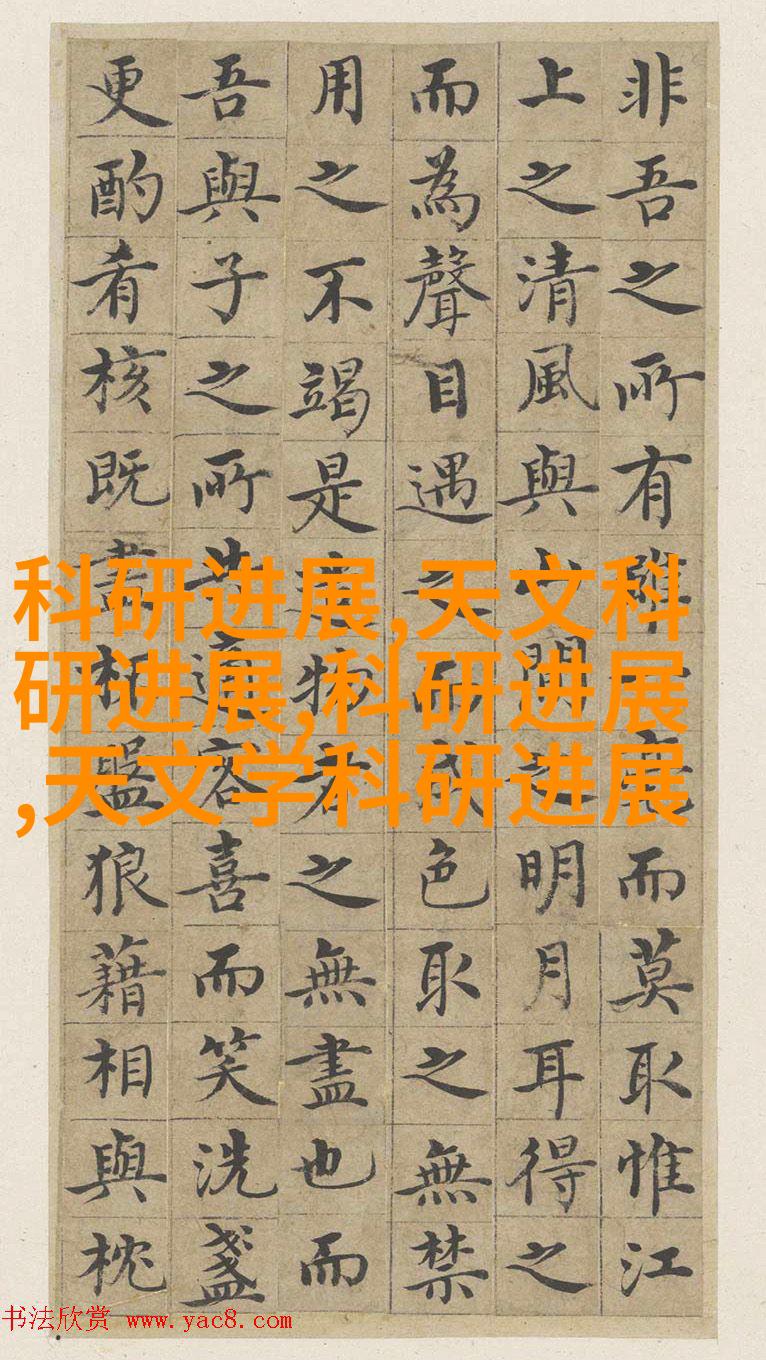 非吾之所有雖一毫而莫取惟江
上之清風與山間之明月耳得之
而為聲目遇之而成色取之無禁
用之不竭是造物者之無盡也而
吾與子之所共適客喜而笑洗盞
更酌肴核既盡杯盤狼藉相與枕
科研进展,天文科
研进展,科研进展
,天文学科研进展
书法欣赏 www.yac8.com